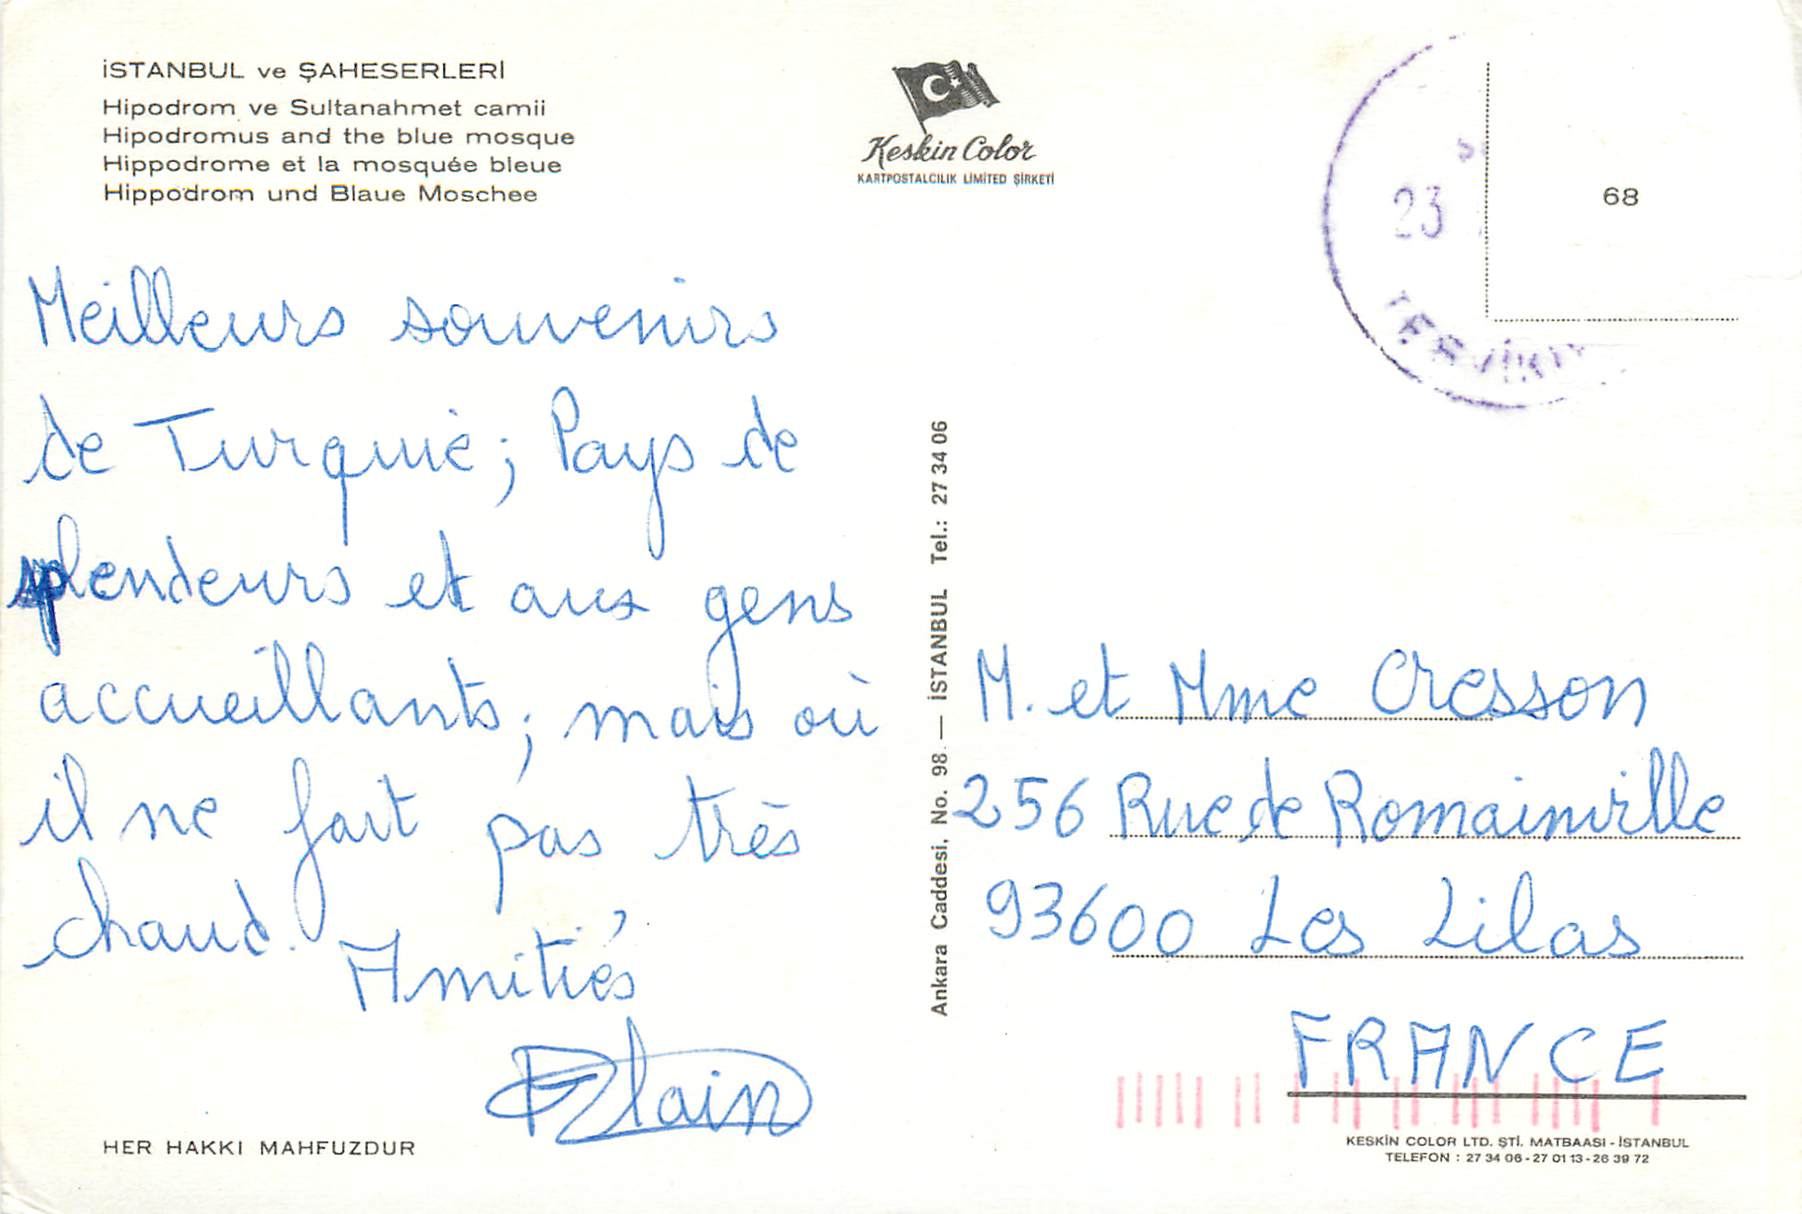 İSTANBUL ve ŞAHESERLERİ
Hipodrom ve Sultanahmet camii
Hipodromus and the blue mosque
Hippodrome et la mosquée bleue
Hippodrom und Blaue Moschee
Keskin Color
KARTPOSTALCILIK LİMİTED ŞİRKETİ
23
68
Meilleurs souvenirs
de Turquie; Pays de
splendeurs et aux gens
accueillants; mais où
il ne fait pas très
chaud.
Amitiés
Alain
Ankara Caddesi, No. 98 — İSTANBUL Tel.: 27 34 06
M. et Mme Cresson
256 Rue de Romainville
93600 Les Lilas
FRANCE
HER HAKKI MAHFUZDUR
KESKİN COLOR LTD. ŞTİ. MATBAASI - İSTANBUL
TELEFON : 27 34 06 - 27 01 13 - 26 39 72